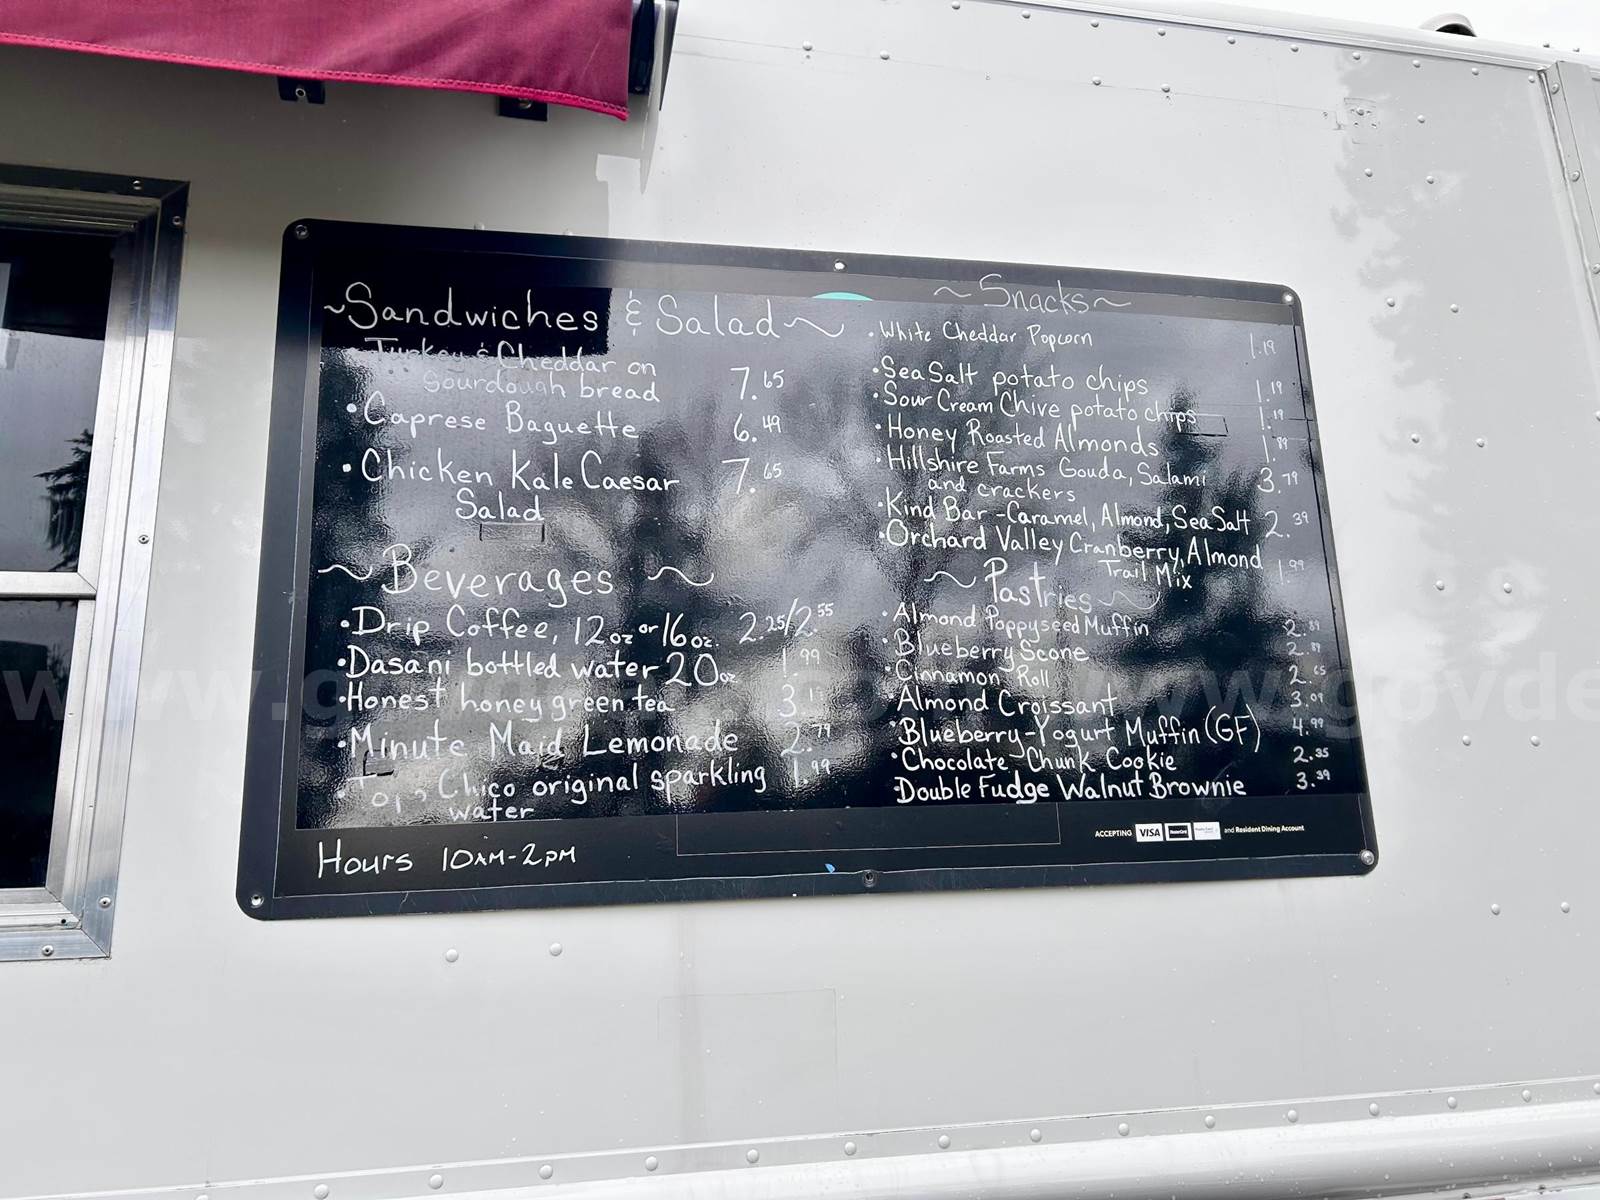 ~Sandwiches & Salad~
Turkey & Cheddar on
Sourdough bread 7.65
• Caprese Baguette 6.49
• Chicken Kale Caesar 7.65
Salad
~Beverages~
• Drip Coffee, 12oz or 16oz. 2.25/2.55
• Dasani bottled water 20oz 1.99
• Honest honey green tea 3.
• Minute Maid Lemonade 2.79
• Topo Chico original sparkling 1.99
water
Hours 10AM-2PM
~Snacks~
• White Cheddar Popcorn 1.19
• Sea Salt potato chips 1.19
• Sour Cream Chive potato chips 1.19
• Honey Roasted Almonds 1.89
• Hillshire Farms Gouda, Salami 3.79
and crackers
• Kind Bar - Caramel, Almond, Sea Salt 2.39
• Orchard Valley Cranberry, Almond 1.99
Trail Mix
~Pastries~
• Almond Poppyseed Muffin 2.89
• Blueberry Scone 2.89
• Cinnamon Roll 2.65
• Almond Croissant 3.09
• Blueberry-Yogurt Muffin (GF) 4.99
• Chocolate-Chunk Cookie 2.35
• Double Fudge Walnut Brownie 3.39
ACCEPTING VISA MasterCard and Resident Dining Account